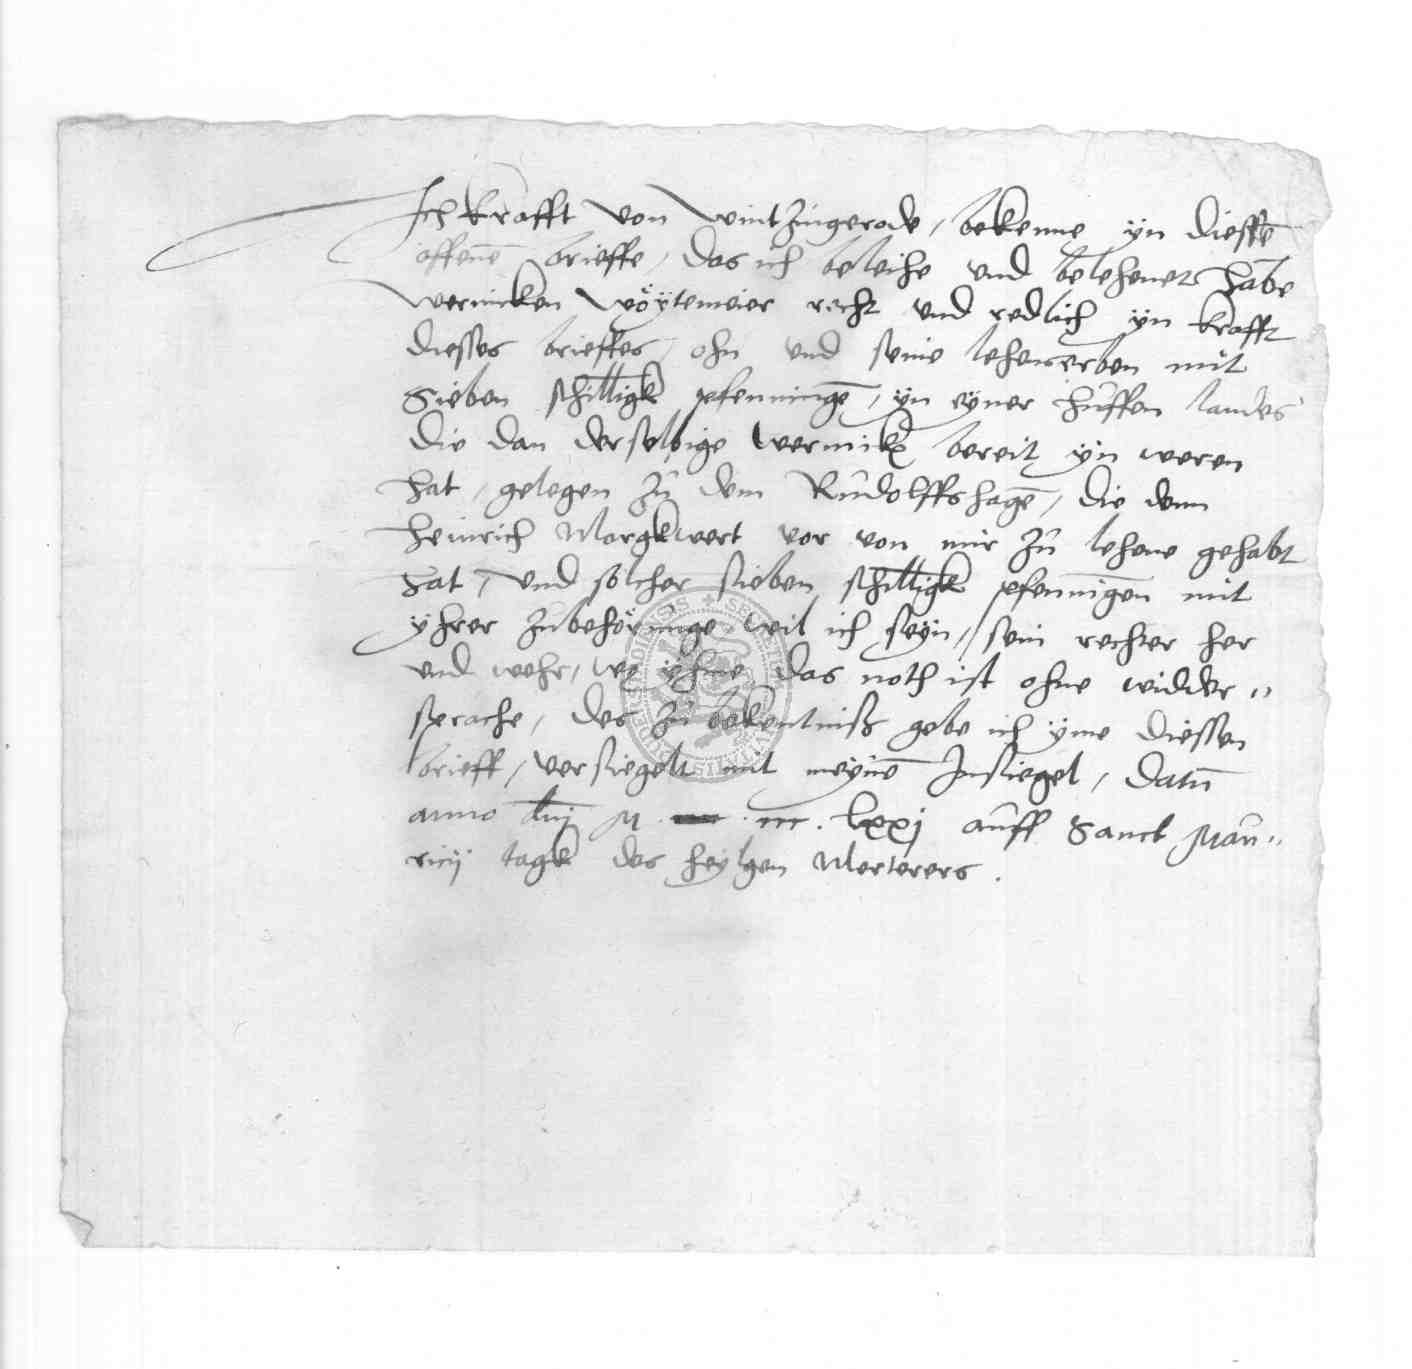 Ich Krafft von Wintzingerode, bekenne yn dieseſſē
offenē brieffe, das ich beleihe und belehenet habe
Wernicken Vöÿtemeier recht und redlich ÿn krafft
diesses brieffes, ohn und seine lehenserben mit
Sieben schillīgk pfenningē, ÿn eÿner hůffen landes
die dan derselbige Wernick bereit ÿn weren
hat, gelegen zů dem Růdolffshagē, die denn
Heinrich Margkwert vor von mir zů lehene gehabt
hat, und solcher sieben schillīgk pfenningen mit
ÿhrer zůbehörůnge wil ich seÿn, sein rechter her
und wehr, wo ÿhme das noth ist ohne widder"
sprache, des zů bekentniß gebe ich ÿme diessen
brieff, versiegelt mit meÿnē Insiegel, datū
anno dnj M . m . lxxj aůff Sanct Maů"
ricij tagk des heÿlgen Merterers .